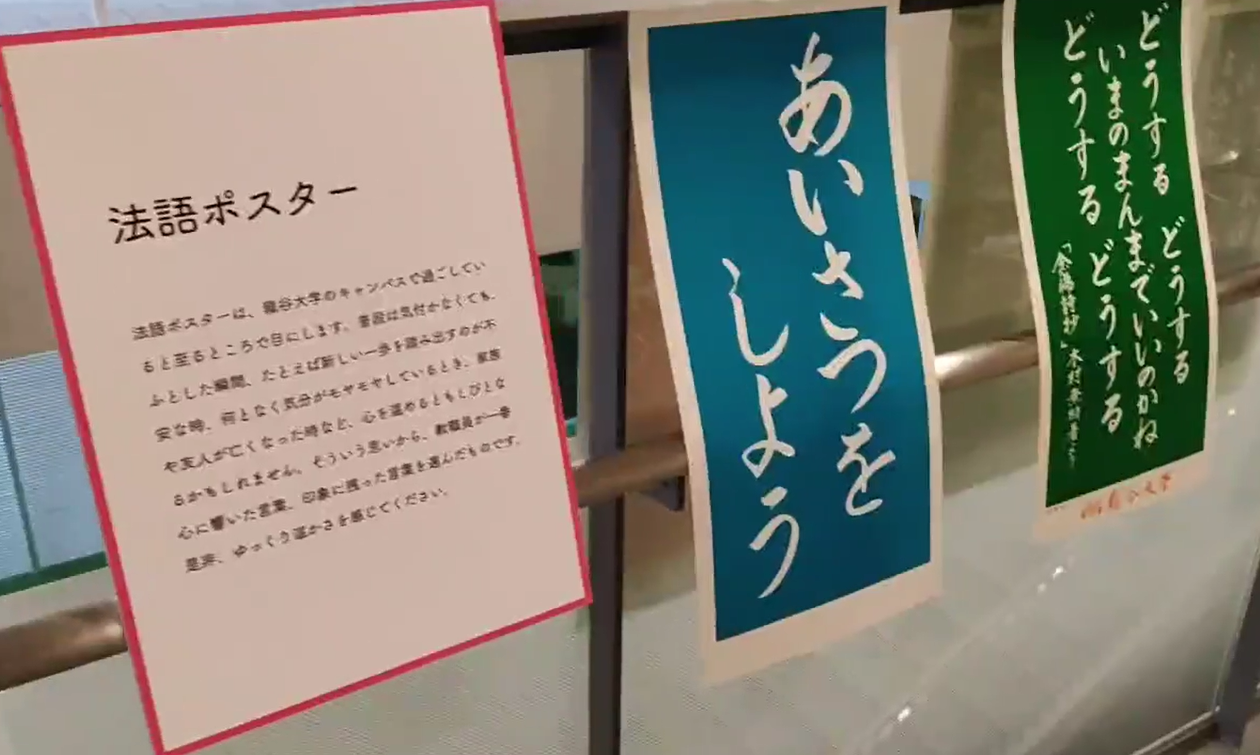 法語ポスター
法語ポスターは、龍谷大学のキャンパスで過ごしてい
ると至るところで目にします。普段は気付かなくても、
ふとした瞬間、たとえば新しい一歩を踏み出すのが不
安な時、何となく気分がモヤモヤしているとき、家族
や友人が亡くなった時など、心を温めるともしびとな
るかもしれません。そういう思いから、教職員が一番
心に響いた言葉、印象に残った言葉を選んだものです。
是非、ゆっくり温かさを感じてください。
あいさつを
しよう
どうする どうする
いまのまんまでいいのかね
どうする どうする
木村無相